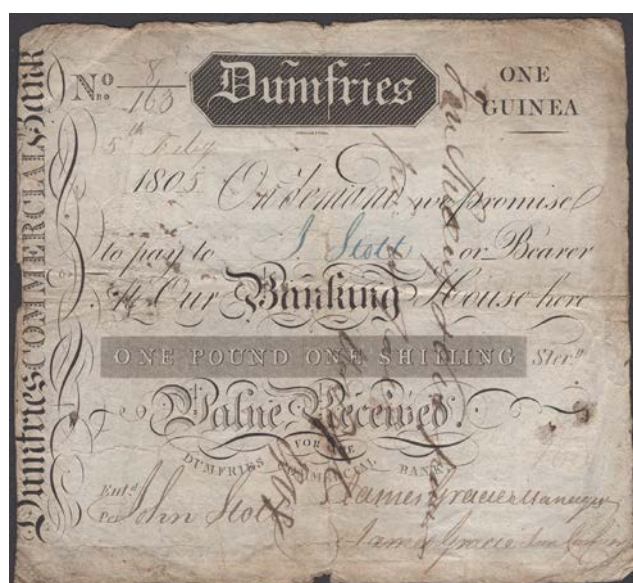 Dumfries COMMERCIAL Bank
No 8/163
Dumfries
ONE
GUINEA
5th Feby
1805 On demand we promise
to pay to J Stott or Bearer
At Our Banking House here
ONE POUND ONE SHILLING Sterg
Value Received.
FOR THE
DUMFRIES COMMERCIAL BANK,
Entd
Per John Stott
James Gracie Manager
James Gracie Junr